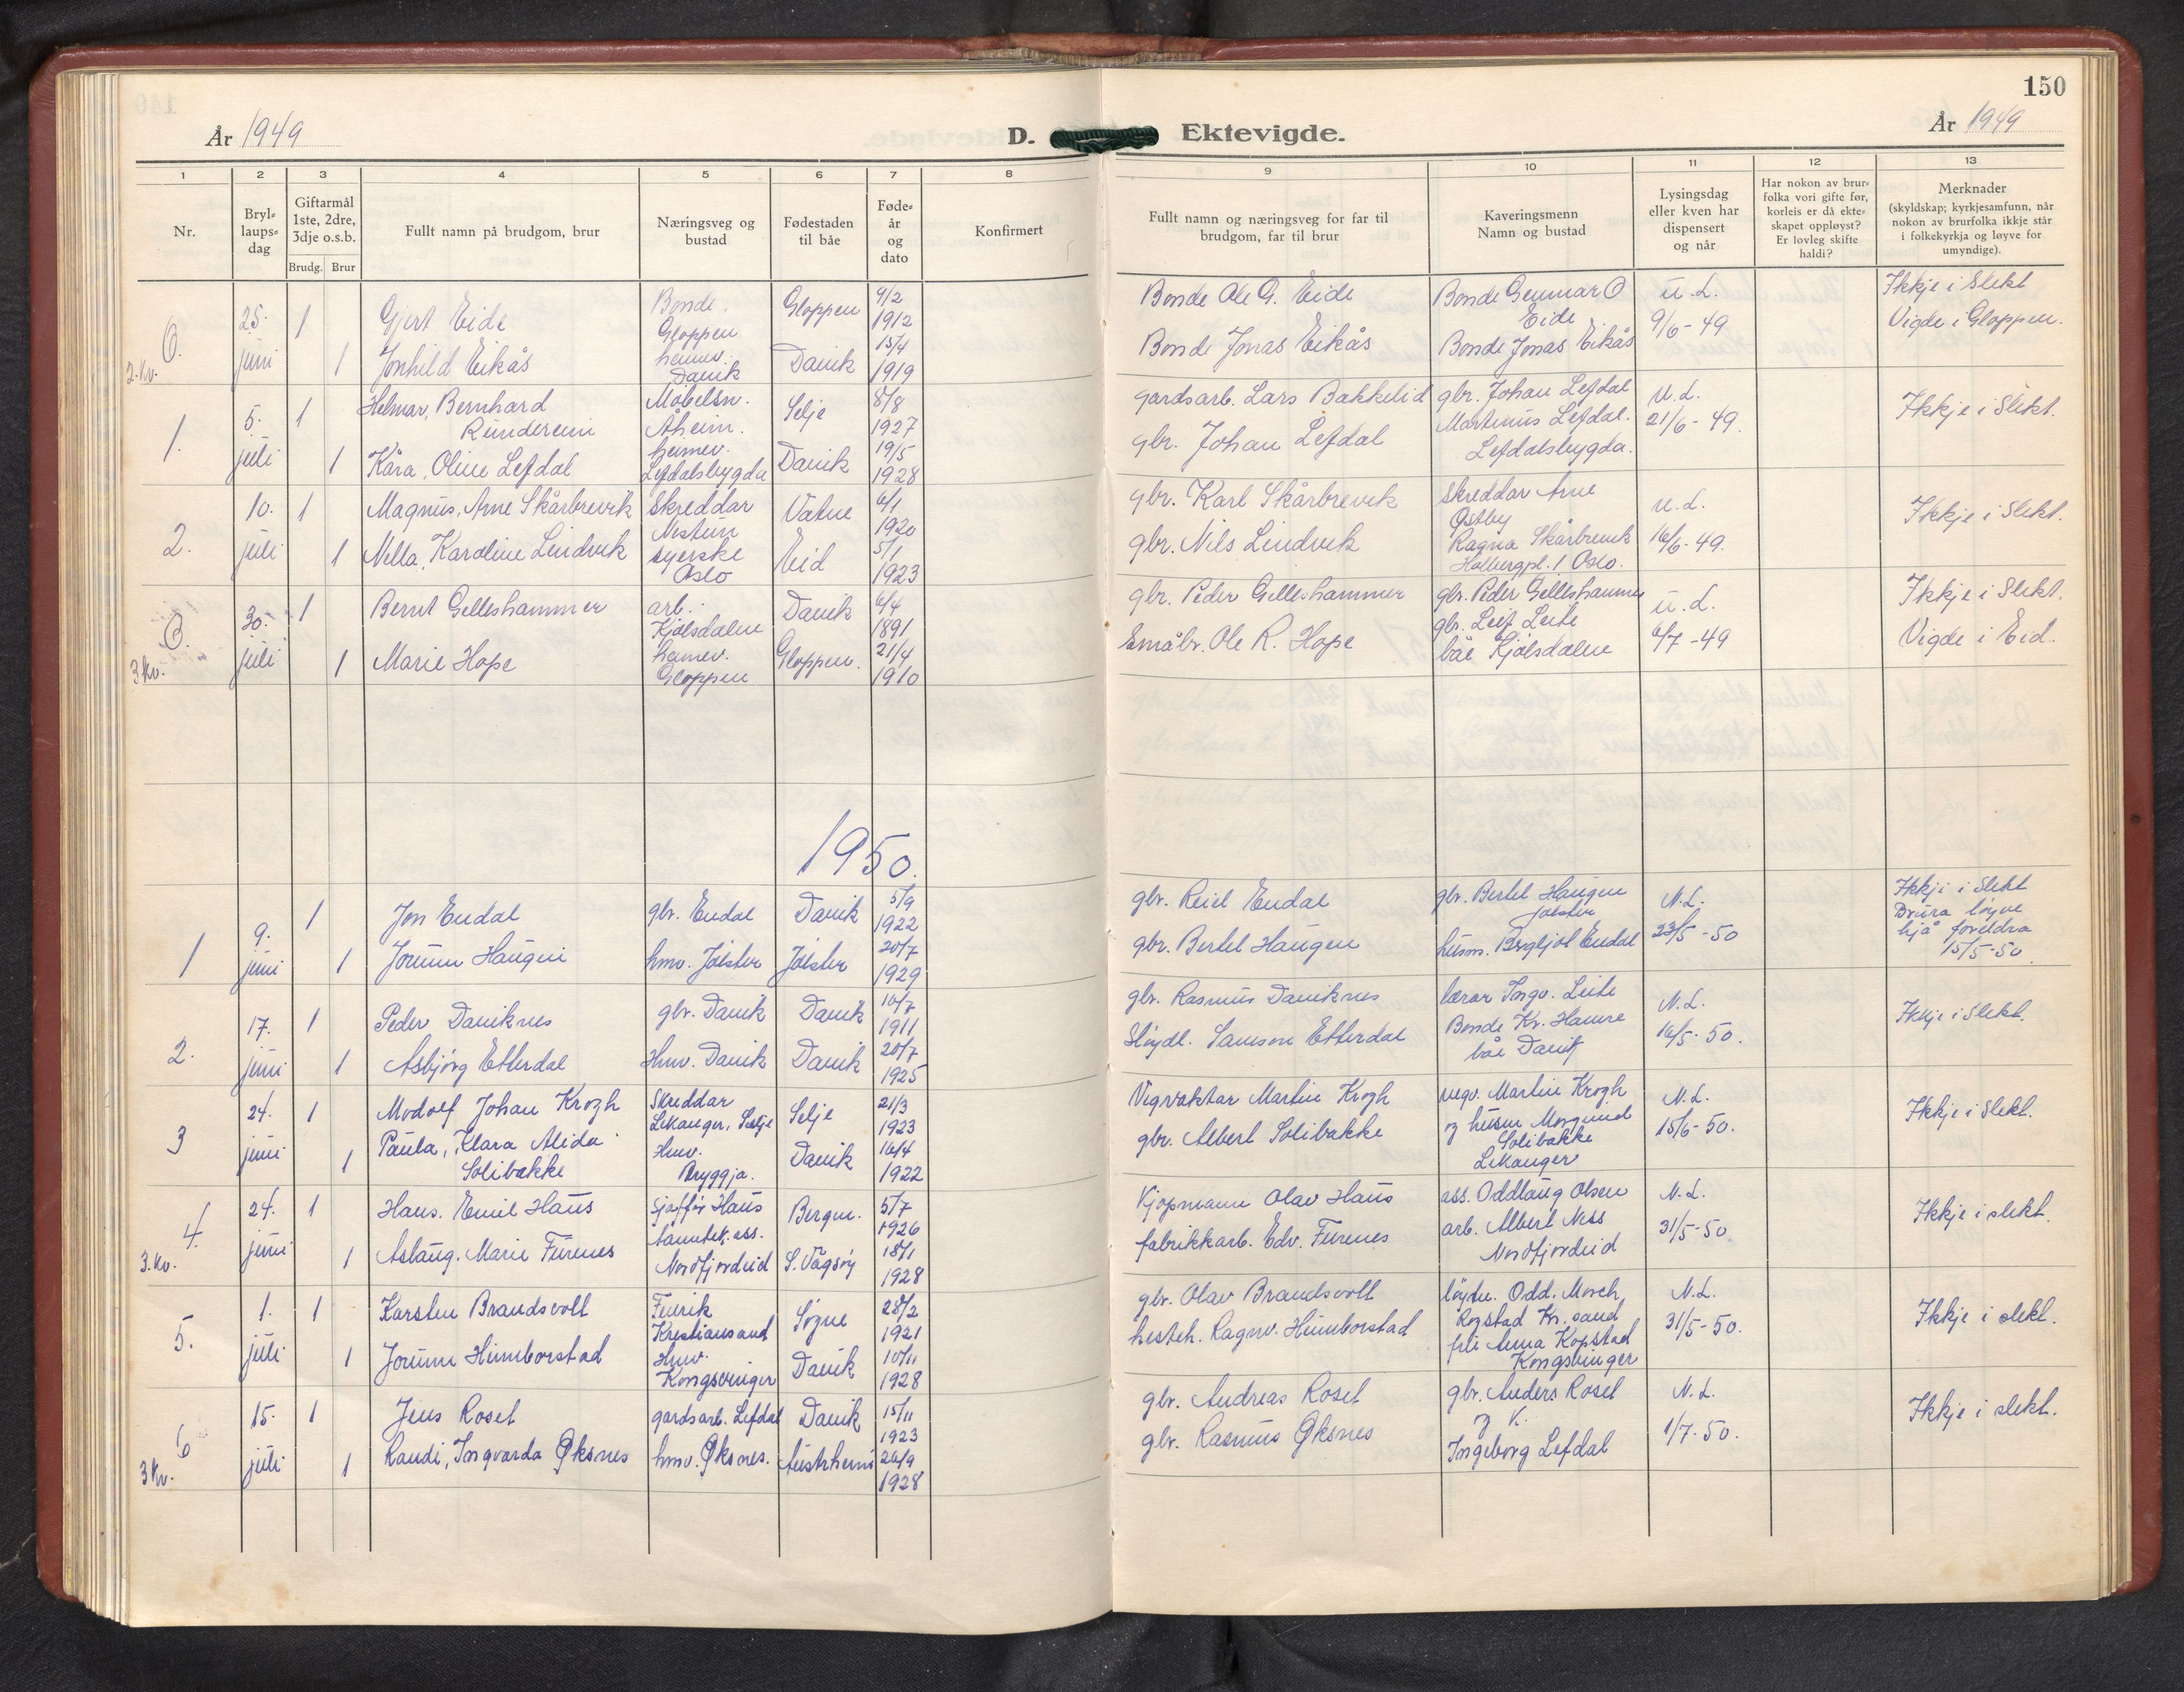 150
År 1949
D.
Ektevigde.
År 1949
1 2 3 4 5 6 7 8 9 10 11 12 13
Nr.
Bryl=
laups=
dag
Giftarmål
1ste, 2dre,
3dje o.s.b.
Brudg. Brur
Fullt namn på brudgom, brur
Næringsveg og
bustad
Fødestaden
til båe
Føde=
år
og
dato
Konfirmert
Fullt namn og næringsveg for far til
brudgom, far til brur
Kaveringsmenn
Namn og bustad
Lysingsdag
eller kven har
dispensert
og når
Har nokon av brur=
folka vori gifte før,
korleis er då ekte=
skapet oppløyst?
Er lovleg skifte
haldi?
Merknader
(skyldskap; kyrkjesamfunn, når
nokon av brurfolka ikkje står
i folkekyrkja og løyve for
umyndige).
2. kv.
25. juni
1 Gjert Eide
Bonde, Gloppen
Gloppen
9/2 1912
Bonde Ole G. Eide
Bonde Gunnar O Eide
u. L.
9/6 - 49
Ikkje i Slekt
Vigde i Gloppen.
1 Jonhild Eikås
heimev. Davik
Davik
15/4 1919
Bonde Jonas Eikås
Bonde Jonas Eikås
1.
5. juli
1 Helmar, Bernhard
Rundereim
Møbelsn. Åheim.
Selje
8/8 1927
gardsarb. Lars Bakkelid
gbr. Johan Lefdal
u. L.
21/6 - 49.
Ikkje i Slekt.
1 Kåra, Oline Lefdal
heimev. Lefdalsbygda
Davik
19/5 1928
gbr. Johan Lefdal
Martinus Lefdal.
Lefdalsbygda.
2.
10. juli
1 Magnus, Arne Skårbrevik
Skreddar Nestun
Vatne
6/1 1920
gbr. Karl Skårbrevik
Skreddar Arne Østby
u. L.
16/6 - 49.
Ikkje i Slekt.
1 Nella, Karoline Lindvik
syerske Oslo
Eid
5/1 1923
gbr. Nils Lindvik
Ragna Skårbrevik
Holbergpl. 1 Oslo.
3 kv.
30. juli
1 Bernt Gilleshammer
arb. Kjølsdalen
Davik
6/4 1891
gbr. Peder Gilleshammer
gbr. Peder Gilleshammer
u. L.
6/7 - 49
Ikkje i Slekt.
Vigde i Eid.
1 Marie Hope
heimev. Gloppen
Gloppen.
21/4 1910
Småbr. Ole R. Hope
gbr. Leif Leite
båe Kjølsdalen
1950.
1
9. juni
1 Jon Endal
gbr. Endal
Davik
5/9 1922
gbr. Reiel Endal
gbr. Bertel Haugen
Jølster
N. L.
23/5 - 50
Ikkje i Slekt
Brura løyve
hjå foreldra
15/5-50.
1 Jorunn Haugen
hmv. Jølster
Jølster
20/7 1929
gbr. Bertel Haugen
husm. Bergljot Endal
2.
17. juni
1 Peder Daviknes
gbr. Davik
Davik
10/7 1911
gbr. Rasmus Daviknes
lærar Ingv. Leite
N. L.
16/5 - 50.
Ikkje i Slekt.
1 Asbjørg Etterdal
Hmv. Davik
Davik
20/7 1925
Sløydl. Samson Etterdal
Bonde Kr. Hamre
båe Davik
3
24. juni
1 Modolf Johan Krogh
Skreddar
Leikanger, Selje
Selje
21/3 1923
Vegvaktar Martin Krogh
vegv. Martin Krogh
N. L.
15/6 - 50.
Ikkje i Slekt.
1 Paula, Klara Alida
Solibakke
Hmv. Bryggja.
Davik
16/4 1922
gbr. Albert Solibakke
og husm Morgund
Solibakke
Leikanger
4.
3. kv.
24. juni
1 Hans. Emil Haus
Sjåffør Haus
Bergen.
5/7 1926
Kjøpmann Olav Haus
ass. Oddlaug Olsen
N. L.
31/5 - 50.
Ikkje i slekt.
1 Aslaug. Marie Furenes
tannlek. ass.
Nordfjordeid
S. Vågsøy
18/1 1928
fabrikkarb. Edv. Furenes
arb. Albert Ness
Nordfjordeid
5.
1. juli
1 Karsten Brandsvoll
Fenrik
Kristiansand
Søgne
28/2 1921
gbr. Olav Brandsvoll
løytn. Odd. Morch,
Rogstad Kr. sand
N. L.
31/5 - 50.
Ikkje i slekt.
1 Jorunn Humborstad
Hmv.
Kongsvinger
Davik
10/11 1928
hesteh. Ragnv. Humborstad
frk Anna Kopstad
Kongsvinger
6
3 kv.
15. juli
1 Jens Roset
gardsarb. Lefdal
Davik
15/11 1923
gbr. Andreas Roset
gbr. Anders Roset
N. L.
1/7 - 50.
Ikkje i slekt.
1 Randi, Ingvarda Øksnes
hmv. Øksnes.
Austrheim
26/9 1928
gbr. Rasmus Øksnes
og K.
Ingeborg Lefdal